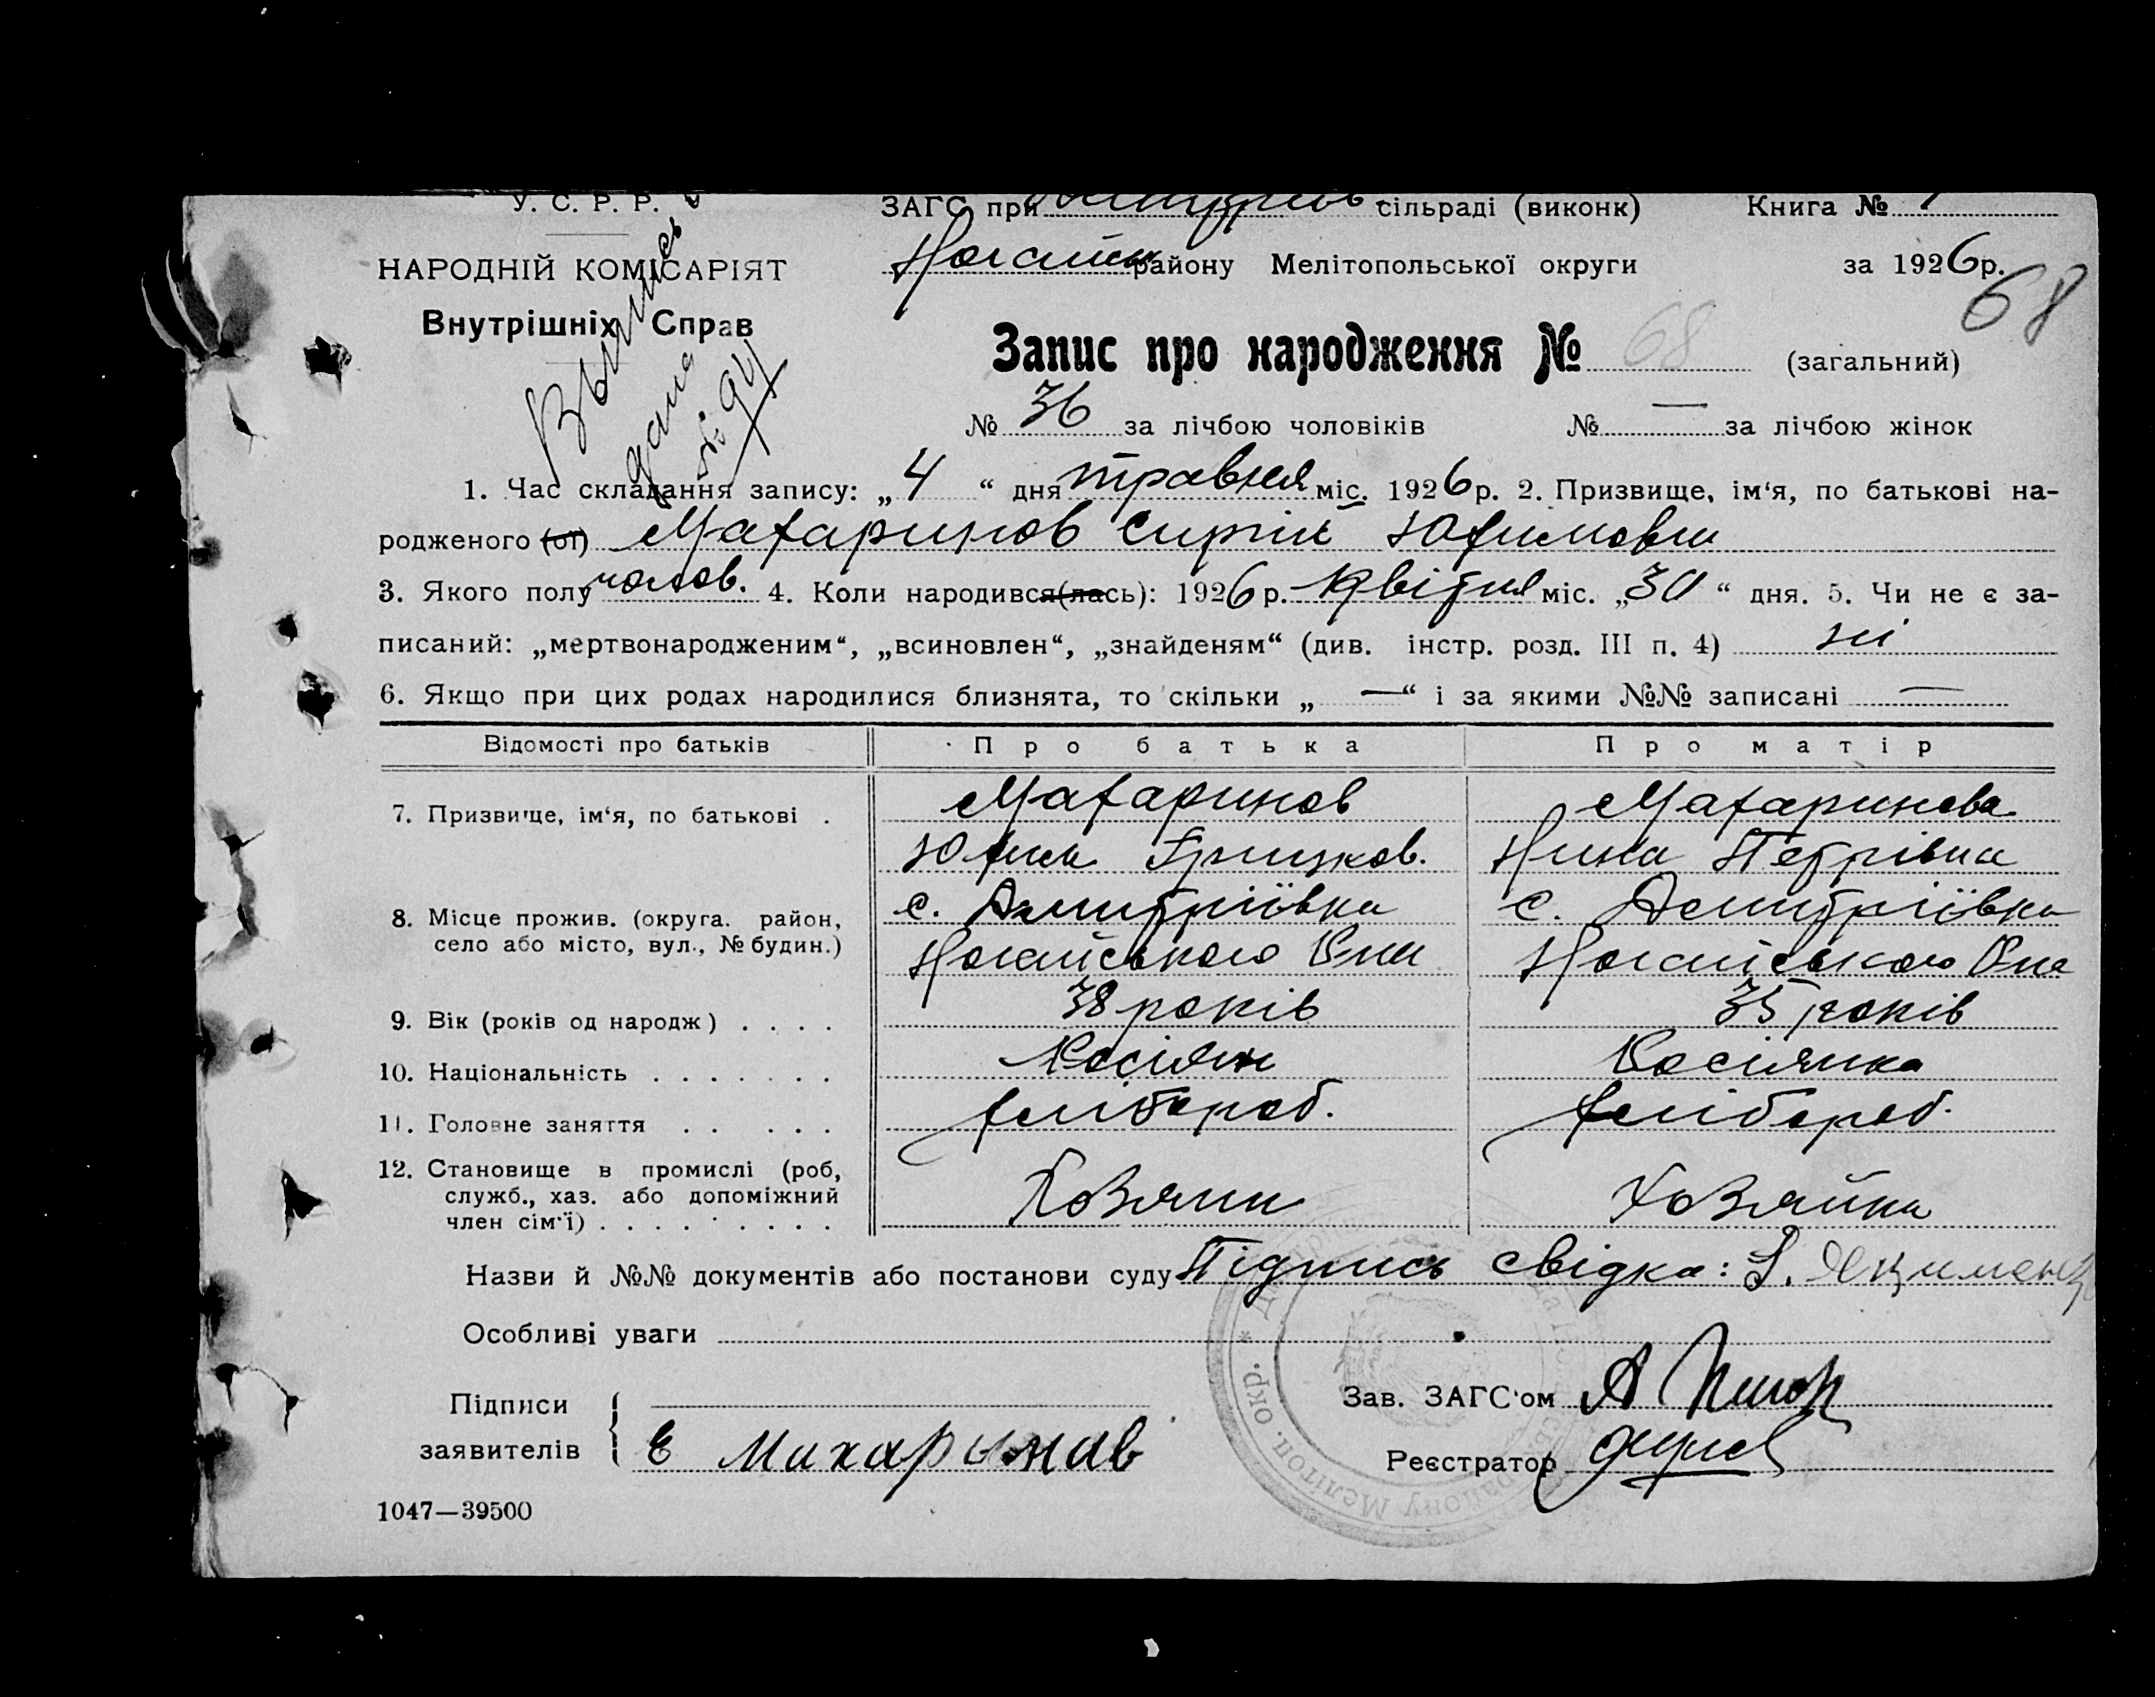 У. С. Р. Р.
НАРОДНІЙ КОМІСАРІЯТ
Внутрішніх Справ
Выпись
дана
ЗАГС при сільраді (виконк) Книга №
Ногайськ району Мелітопольської округи за 1926 р.
68
Запис про народження № 68 (загальний)
№ 36 за лічбою чоловіків № — за лічбою жінок
1. Час складання запису: „4“ дня травня міс. 1926 р. 2. Призвище, ім‘я, по батькові на-
родженого (ої) Махаринов Сиргій Юхимович
3. Якого полу чолов. 4. Коли народився(лась): 1926 р. Квітня міс. „30“ дня. 5. Чи не є за-
писаний: „мертвонародженим“, „всиновлен“, „знайденям“ (див. інстр. розд. III п. 4) ні
6. Якщо при цих родах народилися близнята, то скільки „—“ і за якими №№ записані —
Відомості про батьків Про батька Про матір
7. Призвище, ім‘я, по батькові . Махаринов Махаринова
Юхим Грицков. Нина Петрівна
8. Місце прожив. (округа. район, с. Дмитріївка с. Дмитріївка
село або місто, вул., № будин.) Ногайського Ногайського
9. Вік (років од народж) . . . . 38 років 35 років
10. Національність . . . . . . . Росіян Росіянка
11. Головне заняття . . . . . хлібороб. хлібороб.
12. Становище в промислі (роб,
служб., хаз. або допоміжний
член сім‘ї) . . . . . . . . . Хозяин Хозяйка
Назви й №№ документів або постанови суду Підпись свідка: Якименко
Особливі уваги
Підписи
заявителів Е Махарынав
Зав. ЗАГС‘ом А
Реєстратор
району Мелітоп. окр.
1047—39500